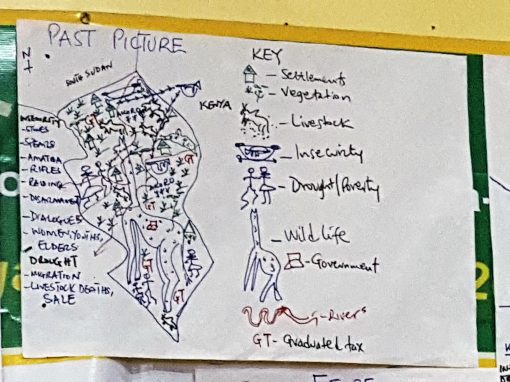 PAST PICTURE
N
SOUTH SUDAN
KENYA
INSECURITY
- STONES
- SPEARS
- AMATIDA
- RIFLES
- RAIDING
- DISARMAMENT
- DIALOGUES
- WOMEN, YOUTHS,
ELDERS
DROUGHT
- MIGRATION
- LIVESTOCK DEATHS,
SALE
GT
GT
GT
GT
GT
KEY
- Settlements
- Vegetation
- Livestock
- Insecurity
- Drought/Poverty
- Wildlife
- Government
- Rivers
GT - Graduated tax